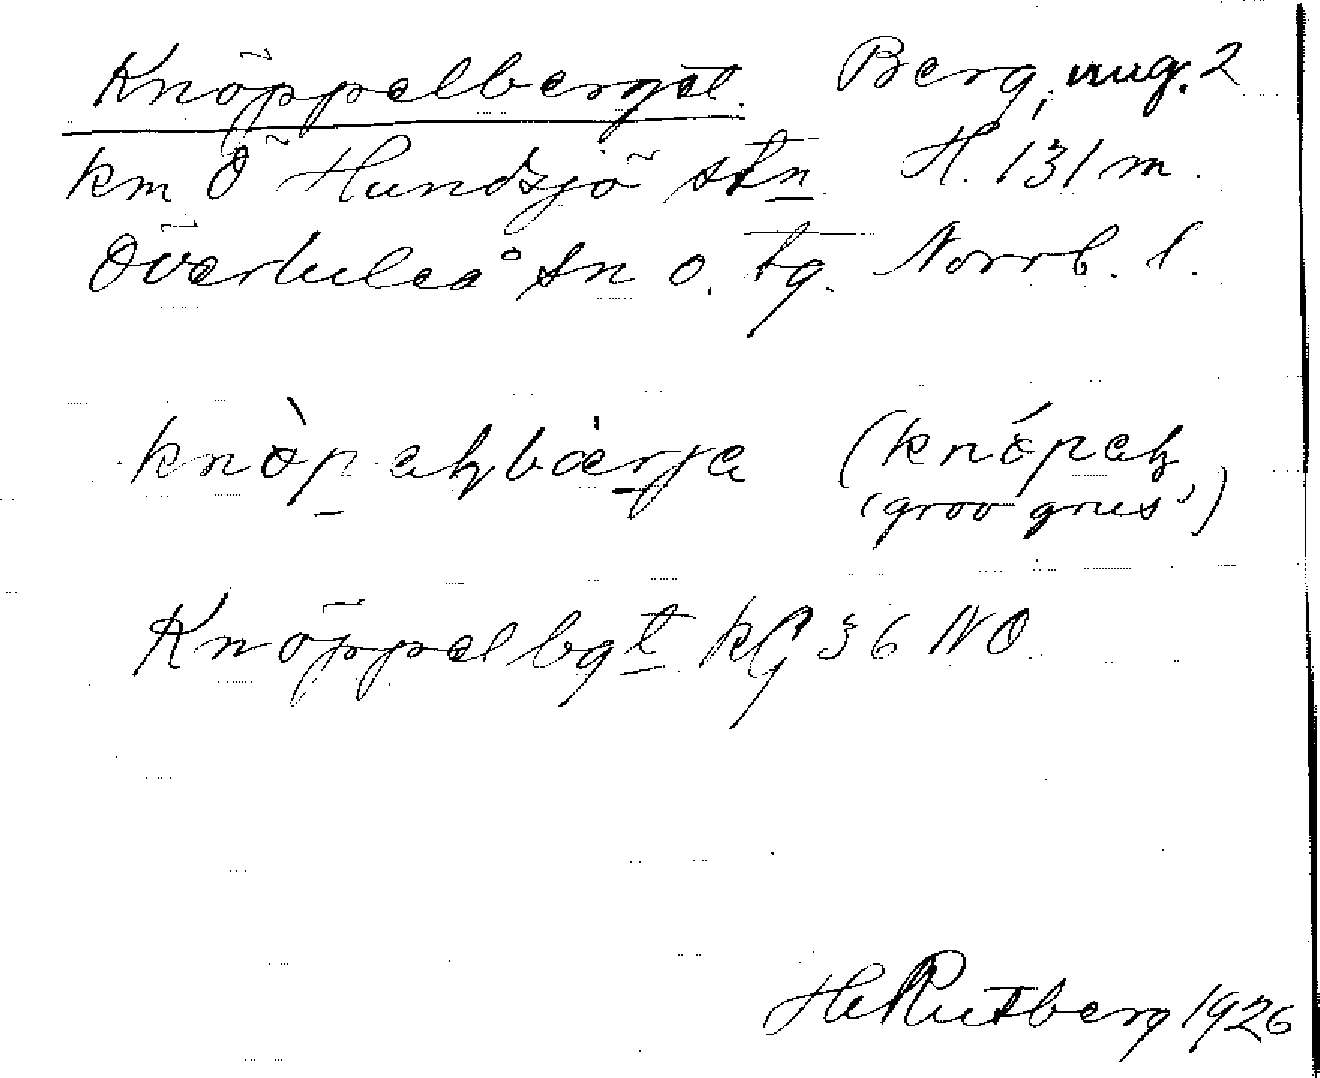 Knöppelberget. Berg, ung. 2
km Ö Hundsjö stn H. 131 m.
Överluleå sn o. tg. Norrb. l.
knòpaḷbàrja (knópaḷ
'grov grus')
Knöppelbgt kG 36 NO
H Rutberg 1926